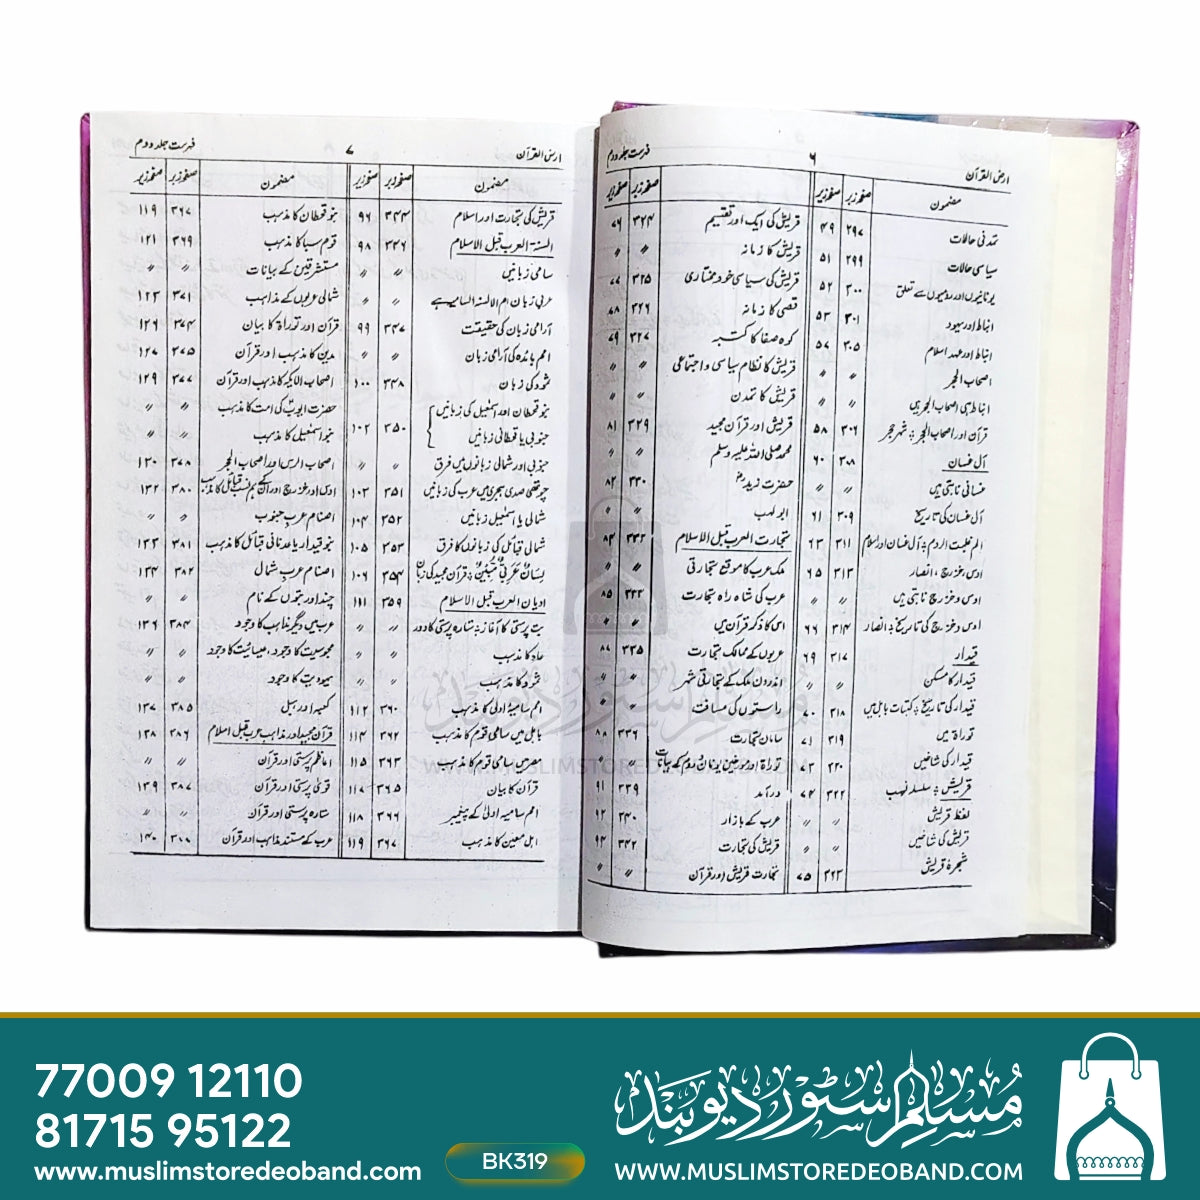 ارض القرآن ۶ فہرست جلد دوم
مضمون صفحہ زیر صفحہ زیر مضمون صفحہ زیر صفحہ زیر
تمدنی حالات ۲۹۷ ۴۹ قریش کی ایک اور تقسیم ۳۲۴ ۷۶
سیاسی حالات ۲۹۹ ۵۱ قریش کا زمانہ " "
یونانیوں اور رومیوں سے تعلق ۳۰۰ ۵۲ قریش کی سیاسی خود مختاری ۳۲۵ ۷۷
انباط اور یہود ۳۰۱ ۵۳ قصی کا زمانہ ۳۲۶ ۷۸
انباط اور عہد اسلام ۳۰۵ ۵۷ کوہ صفا کا کتبہ ۳۲۷ ۷۹
اصحاب الحجر " " قریش کا نظام سیاسی و اجتماعی
انباط ہی اصحاب الحجر ہیں " " قریش کا تمدن
قرآن اور اصحاب الحجر ؛ شہر حجر ۳۰۶ ۵۸ قریش اور قرآن مجید ۳۲۹ ۸۱
آل غسان ۳۰۸ ۶۰ محمد صلی اللہ علیہ وسلم
غسانی نابتی ہیں " " حضرت زید رضؓ ۳۳۰ ۸۲
آل غسان کی تاریخ ۳۰۹ ۶۱ ابو لہب " "
الم غلبت الروم ؛ آل غسان اور اسلام ۳۱۱ ۶۳ تجارت العرب قبل الاسلام ۳۳۲ ۸۴
اوس و خزرج ، انصار ۳۱۳ ۶۵ ملک عرب کا موقع تجارتی " "
اوس و خزرج نابتی ہیں " " عرب کی شاہ راہ تجارت ۳۳۳ ۸۵
اوس و خزرج کی تاریخ ؛ انصار ۳۱۴ ۶۶ اس کا ذکر قرآن میں " "
قیدار ۳۱۷ ۶۹ عربوں کے ممالک تجارت ۳۳۵ ۸۷
قیدار کا مسکن " " اندرون ملک کے تجارتی شہر " "
قیدار کی تاریخ ؛ کتبات بابل میں ۳۱۸ ۷۰ راستوں کی مسافت " "
توراۃ میں ۳۱۹ ۷۱ سامان تجارت ۳۳۶ ۸۸
قیدار کی شاخیں ۳۲۰ ۷۲ توراۃ اور مورخین یونان و روم کے بیانات " "
قریش ؛ سلسلہ نسب ۳۲۲ ۷۴ درآمد ۳۳۹ ۹۱
لفظ قریش " " عرب کے بازار ۳۴۰ ۹۲
قریش کی شاخیں " " قریش کی تجارت ۳۴۲ ۹۴
شجرۂ قریش ۳۲۳ ۷۵ تجارت قریش اور قرآن " "
ارض القرآن ۷ فہرست جلد دوم
مضمون صفحہ زیر صفحہ زیر مضمون صفحہ زیر صفحہ زیر
قریش کی تجارت اور اسلام ۳۴۴ ۹۶ بنو قحطان کا مذہب ۳۶۷ ۱۱۹
السنۃ العرب قبل الاسلام ۳۴۶ ۹۸ قوم سبا کا مذہب ۳۶۹ ۱۲۱
سامی زبانیں " " مستشرقین کے بیانات " "
عربی زبان ام الالسنہ السامیہ ہے " " شمالی عربوں کے مذاہب ۳۷۱ ۱۲۳
آرامی زبان کی حقیقت ۳۴۷ ۹۹ قرآن اور توراۃ کا بیان ۳۷۴ ۱۲۶
امم بائدہ کی آرامی زبان " " مدین کا مذہب اور قرآن ۳۷۵ ۱۲۷
ثمود کی زبان ۳۴۸ ۱۰۰ اصحاب الایکہ کا مذہب اور قرآن ۳۷۷ ۱۲۹
بنو قحطان اور اسمٰعیل کی زبانیں حضرت ایوبؑ کی امت کا مذہب " "
جنوبی یا قحطانی زبانیں ۳۵۰ ۱۰۲ بنو اسمٰعیل کا مذہب " "
جنوبی اور شمالی زبانوں میں فرق " " اصحاب الرس اور اصحاب الحجر ۳۷۸ ۱۳۰
چوتھی صدی ہجری میں عرب کی زبانیں ۳۵۱ ۱۰۳ اوس اور خزرج اور ان کے ہم نسب قبائل کا مذہب ۳۸۰ ۱۳۲
شمالی یا اسمٰعیلی زبانیں ۳۵۲ ۱۰۴ اصنام عرب جنوب " "
شمالی قبائل کی زبانوں کا فرق ۳۵۳ ۱۰۵ بنو قیدار یا عدنانی قبائل کا مذہب ۳۸۱ ۱۳۳
لِسَانٌ عَرَبِیٌّ مُّبِیْنٌ ؛ قرآن مجید کی زبان ۳۵۴ ۱۰۶ اصنام عرب شمال ۳۸۲ ۱۳۴
ادیان العرب قبل الاسلام ۳۵۹ ۱۱۱ چند اور بتوں کے نام " "
بت پرستی کا آغاز ؛ ستارہ پرستی کا دور عرب میں دیگر مذاہب کا وجود ۳۸۴ ۱۳۶
عاد کا مذہب " " مجوسیت کا وجود ، عیسائیت کا وجود
ثمود کا مذہب یہودیت کا وجود
امم سامیۂ اولیٰ کا مذہب ۳۶۰ ۱۱۲ کعبہ اور ہبل ۳۸۵ ۱۳۷
بابل میں سامی قوم کا مذہب ۳۶۲ ۱۱۴ قرآن مجید اور مذاہب عرب قبل اسلام ۳۸۶ ۱۳۸
مصر میں سامی قوم کا مذہب ۳۶۳ ۱۱۵ اعاظم پرستی اور قرآن
قرآن کا بیان ۳۶۵ ۱۱۷ قویٰ پرستی اور قرآن ۳۸۷ ۱۳۹
امم سامیہ اولیٰ کے پیغمبر ۳۶۶ ۱۱۸ ستارہ پرستی اور قرآن " "
اہل معین کا مذہب ۳۶۷ ۱۱۹ عرب کے مستند مذاہب اور قرآن ۳۰۰ ۱۴۰
مسلم سٹور دیوبند
WWW.MUSLIMSTOREDEOBAND.COM
77009 12110
81715 95122
www.muslimstoredeoband.com
BK319
مسلم سٹور دیوبند
WWW.MUSLIMSTOREDEOBAND.COM